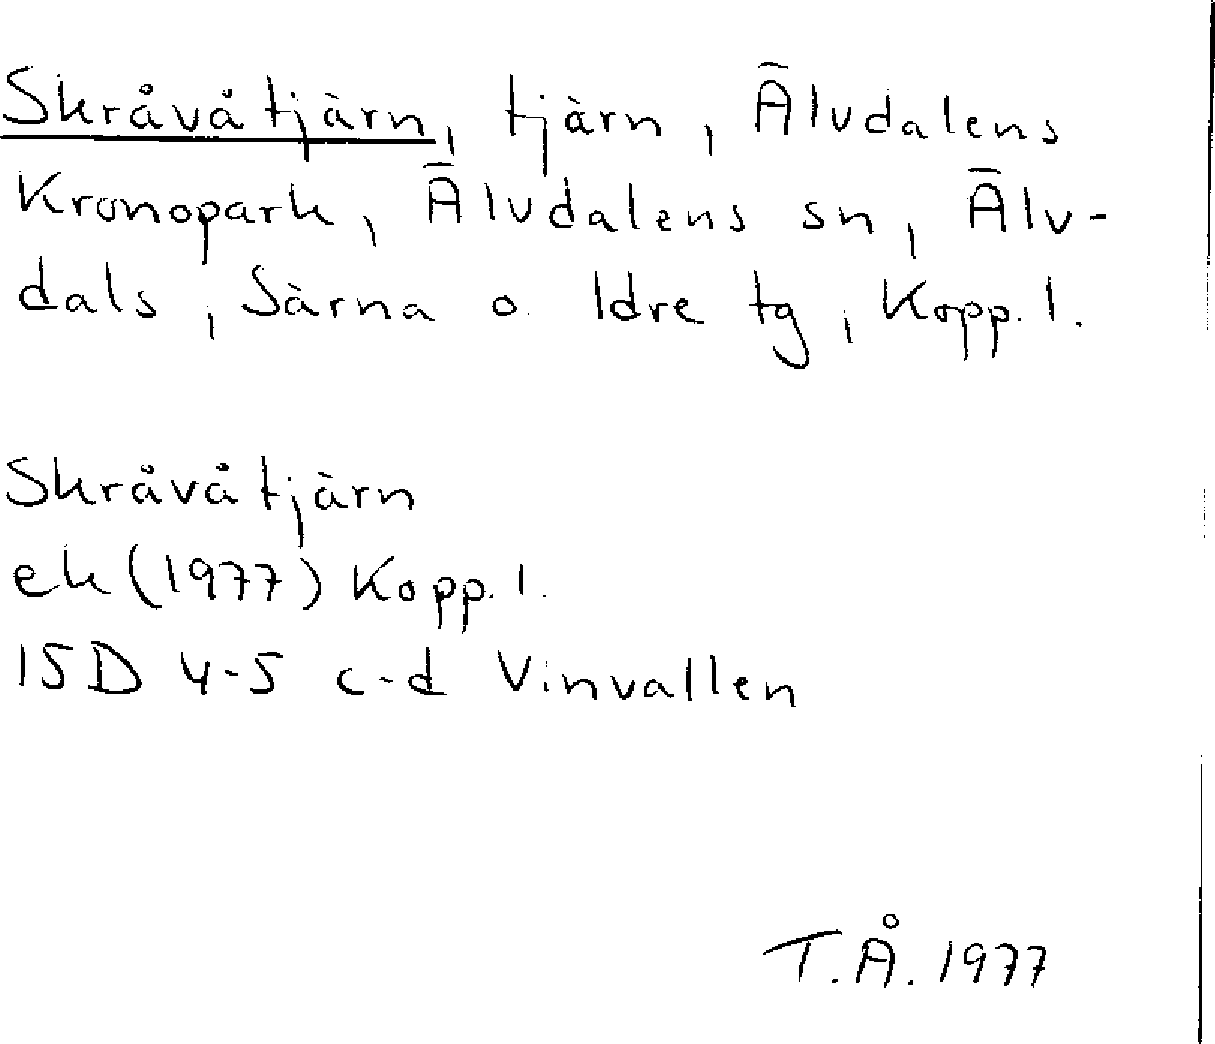 Skråvåtjärn, tjärn, Älvdalens
Kronopark, Älvdalens sn, Älv-
dals, Särna o. Idre tg, Kopp. l.
Skråvåtjärn
ek (1977) Kopp. l.
15D 4-5 c-d Vinvallen
T.Å. 1977